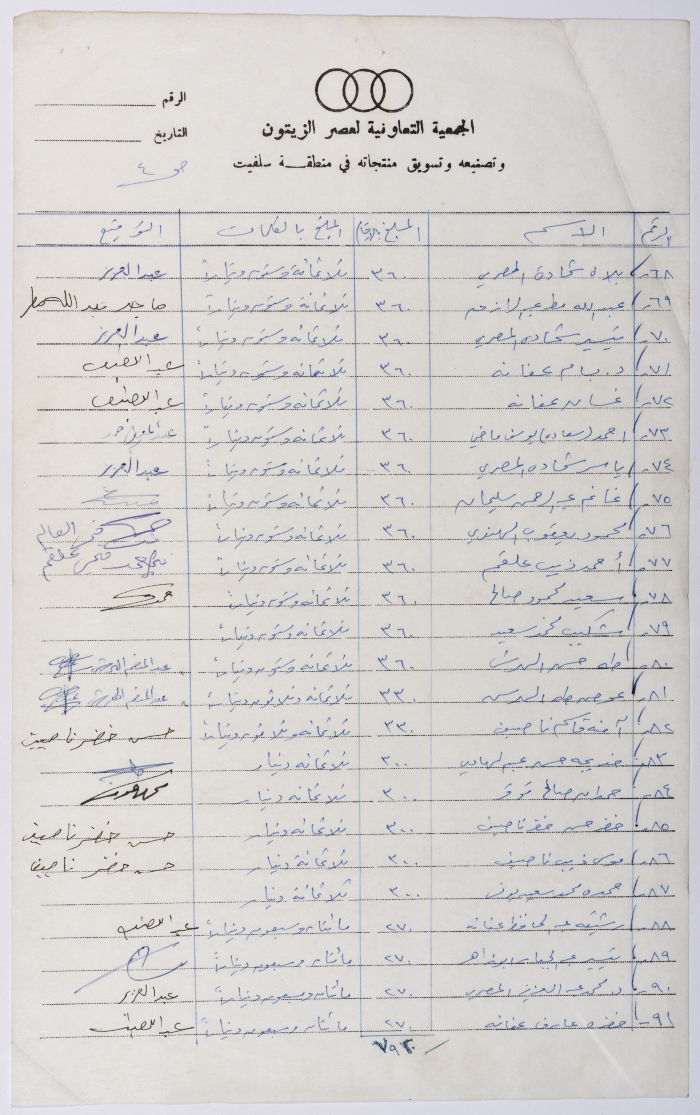 الرقم
الجمعية التعاونية لعصر الزيتون
التاريخ
وتصنيعه وتسويق منتجاته في منطقة سلفيت
ص ٤
الرقم الاسم المبلغ بالارقام المبلغ بالكلمات التوقيع
٦٨- شحادة المصري ٣٦٠ ثلاثمائة وستون ديناراً عبد العزيز
٦٩- عبد الله ٣٦٠ ثلاثمائة وستون ديناراً عبد الله
٧٠- تيسير شحاده المصري ٣٦٠ ثلاثمائه وستون ديناراً عبد العزيز
٧١- د. بسام عفانه ٣٦٠ ثلاثمائه وستون ديناراً عبد اللطيف
٧٢- غسان عفانه ٣٦٠ ثلاثمائه وستون ديناراً عبد اللطيف
٧٣- احمد (سعاده) يوسف ماضي ٣٦٠ ثلاثمائه وستون ديناراً
٧٤- ياسر شحاده المصري ٣٦٠ ثلاثمائه وستون ديناراً عبد العزيز
٧٥- غانم عبد الرحمن سليمان ٣٦٠ ثلاثمائه وستون ديناراً
٧٦- محمود يعقوب ٣٦٠ ثلاثمائه وستون ديناراً
٧٧- أحمد ذيب علقم ٣٦٠ ثلاثمائه وستون ديناراً
٧٨- سعيد محمود صالح ٣٦٠ ثلاثمائه وستون ديناراً
٧٩- شكيب محمد سعيد ٣٦٠ ثلاثمائه وستون ديناراً
٨٠- طه حسن ٣٦٠ ثلاثمائه وستون ديناراً عبد المنعم
٨١- عوض طه ٣٣٠ ثلاثمائه وثلاثون ديناراً عبد المنعم
٨٢- آمنه قاسم ناصيف ٣٣٠ ثلاثمائه وثلاثون ديناراً حسن خضر ناصيف
٨٣- خديجه حسن عبد الهادي ٣٠٠ ثلاثمائه دينار
٨٤- حمدان صالح ٣٠٠ ثلاثمائه دينار
٨٥- خضر حسن خضر ناصيف ٣٠٠ ثلاثمائه دينار حسن خضر ناصيف
٨٦- موسى ذيب ناصيف ٣٠٠ ثلاثمائة دينار حسن خضر ناصيف
٨٧- حمده محمد سعيد ٣٠٠ ثلاثمائة دينار
٨٨- رشيقه عبد الحافظ عفانه ٢٧٠ مائتان وسبعون ديناراً عبد اللطيف
٨٩- تيسير عبد الجبار ٢٧٠ مائتان وسبعون ديناراً
٩٠- د. محمد عبد العزيز المصري ٢٧٠ مائتان وسبعون ديناراً عبد العزيز
٩١- عارف عفانه ٢٧٠ مائتان وسبعون ديناراً عبد اللطيف
٧٩٢٠